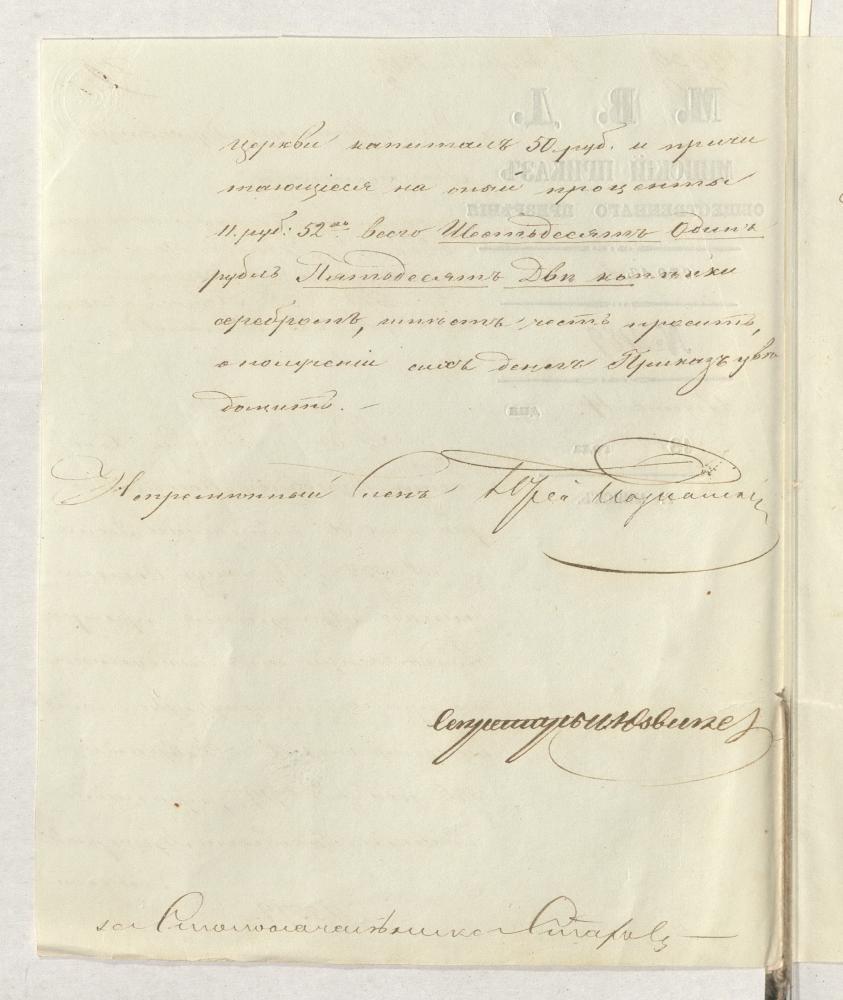 церкви капиталъ 50 руб. и причи
тающіеся на оный проценты
11. руб: 52 ко. всего Шестьдесятъ Одинъ
рубль Пятьдесятъ Двѣ копѣйки
серебромъ, имѣетъ честь просить,
о полученіи сихъ денегъ Приказъ увѣ
домить. –
Непремѣнный Членъ Юрей
Секретарь
за Столоначальника
М. В. Д.
МИНСКІЙ ПРИКАЗЪ
ОБЩЕСТВЕННАГО ПРИЗРѢНІЯ
дня
года